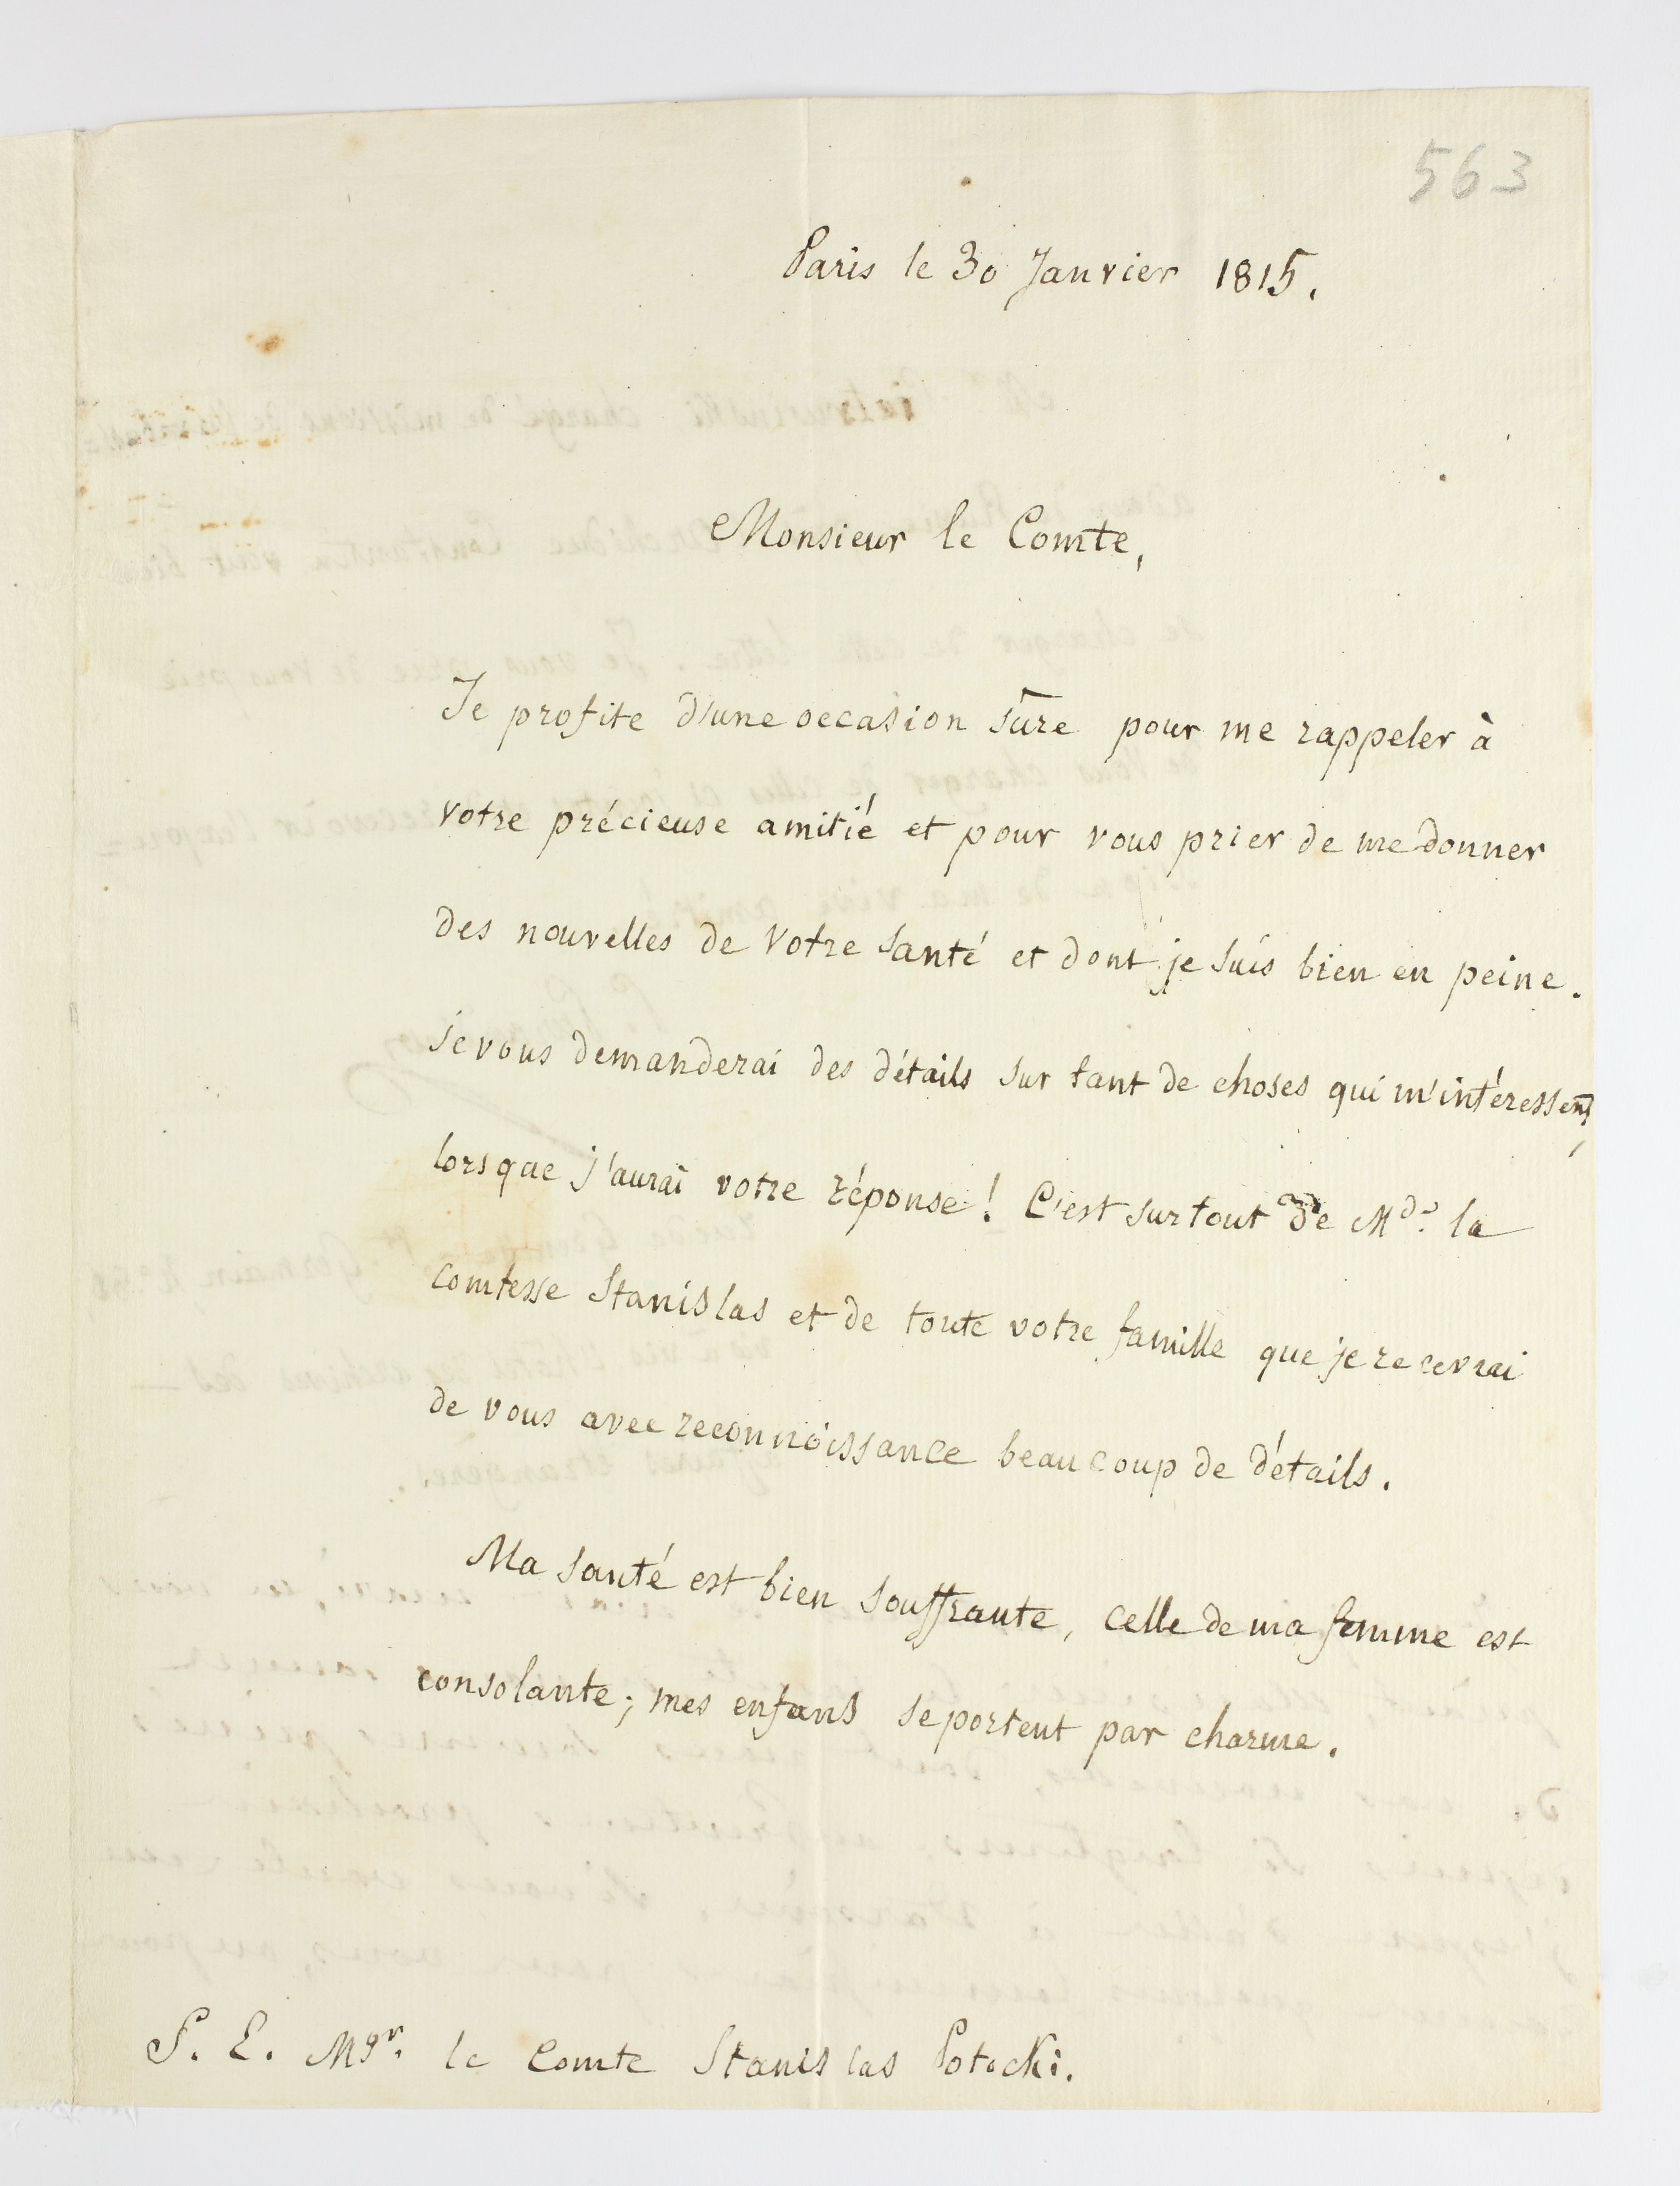 563
Paris le 30 Janvier 1815.
Monsieur le Comte,
Je profite d'une occasion sûre pour me rappeler à
votre précieuse amitié et pour vous prier de me donner
des nouvelles de votre santé et dont je suis bien en peine.
Je vous demanderai des détails sur tant de choses qui m'intéressent,
lorsque j'aurai votre réponse! C'est surtout de Mde. la
comtesse Stanislas et de toute votre famille que je recevrai
de vous avec reconnoissance beaucoup de détails.
Ma santé est bien souffrante, celle de ma femme est
consolante; mes enfans se portent par charme.
S. E. Mgr. le Comte Stanislas Potocki.